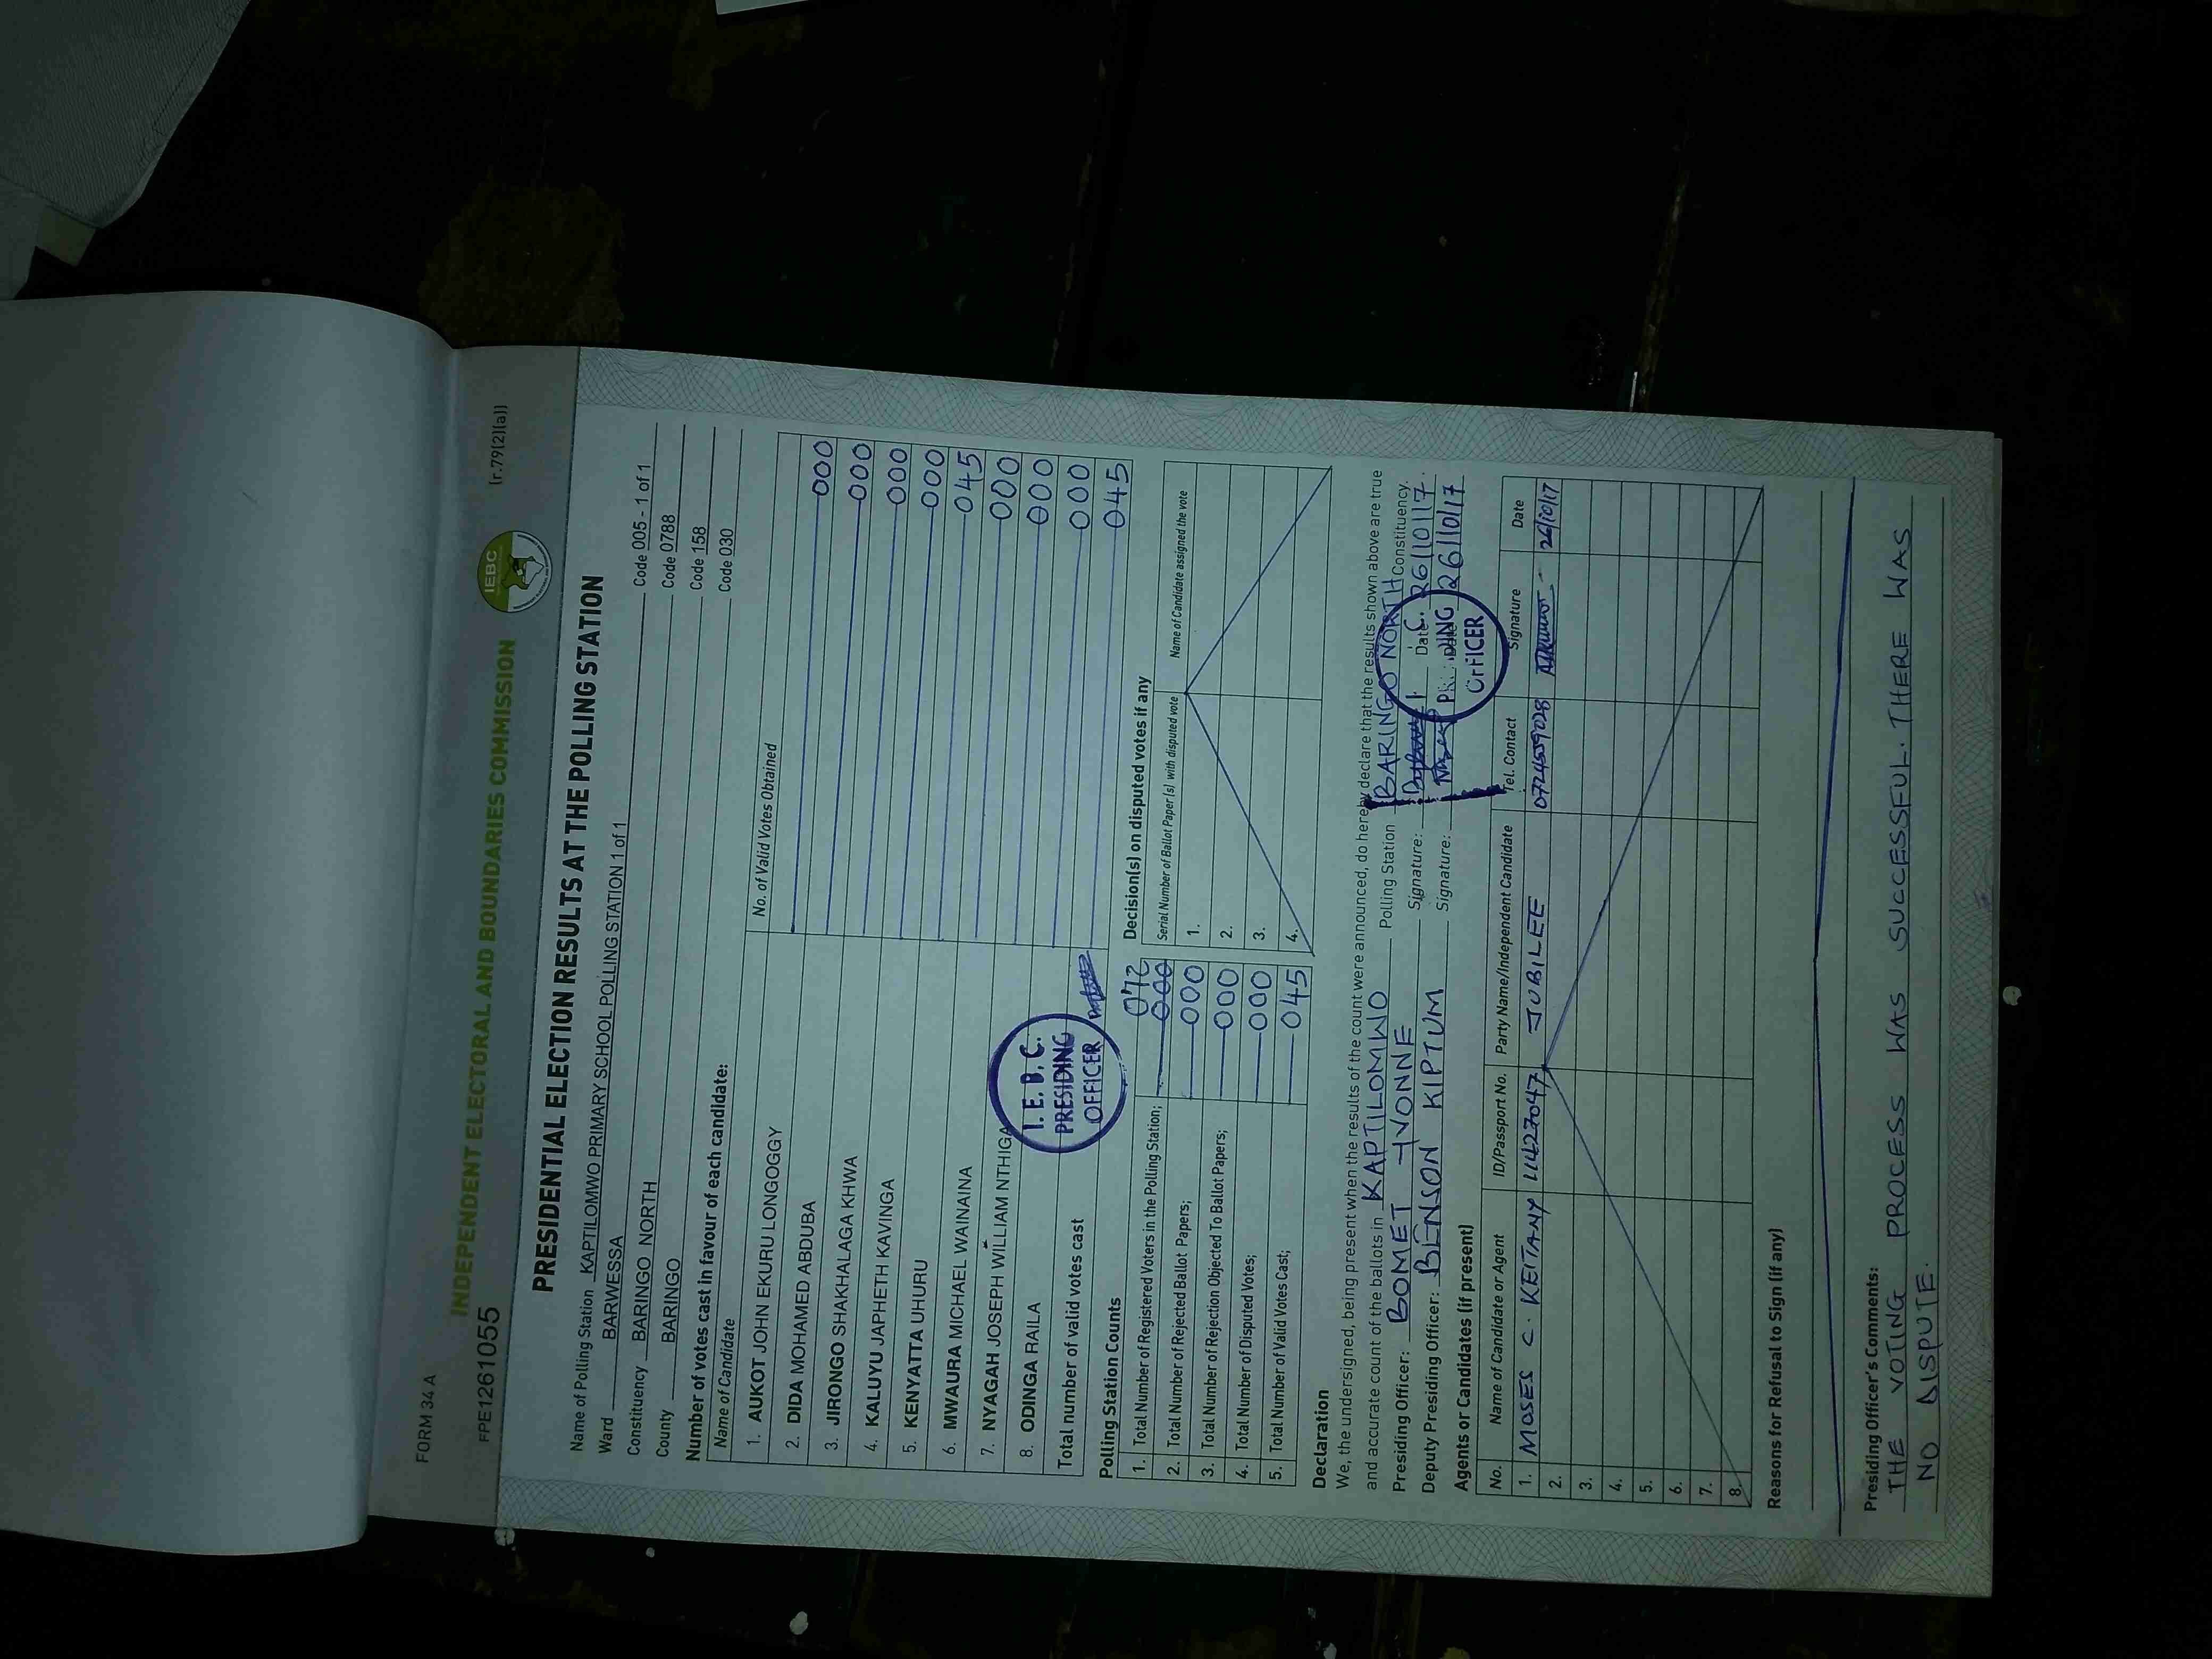 FORM 34 A
(r.79(2)(a))
FPE1261055
INDEPENDENT ELECTORAL AND BOUNDARIES COMMISSION
IEBC
PRESIDENTIAL ELECTION RESULTS AT THE POLLING STATION
Name of Polling Station KAPTILOMWO PRIMARY SCHOOL POLLING STATION 1 of 1 Code 005 - 1 of 1
Ward BARWESSA Code 0788
Constituency BARINGO NORTH Code 158
County BARINGO Code 030
Number of votes cast in favour of each candidate:
Name of Candidate No. of Valid Votes Obtained
1. AUKOT JOHN EKURU LONGOGGY 000
2. DIDA MOHAMED ABDUBA 000
3. JIRONGO SHAKHALAGA KHWA 000
4. KALUYU JAPHETH KAVINGA 000
5. KENYATTA UHURU 045
6. MWAURA MICHAEL WAINAINA 000
7. NYAGAH JOSEPH WILLIAM NTHIGA 000
8. ODINGA RAILA 000
Total number of valid votes cast 045
I.E.B.C.
PRESIDING
OFFICER
Polling Station Counts
1. Total Number of Registered Voters in the Polling Station; 072 000
2. Total Number of Rejected Ballot Papers; 000
3. Total Number of Rejection Objected To Ballot Papers; 000
4. Total Number of Disputed Votes; 000
5. Total Number of Valid Votes Cast; 045
Decision(s) on disputed votes if any
Serial Number of Ballot Paper (s) with disputed vote Name of Candidate assigned the vote
1.
2.
3.
4.
Declaration
We, the undersigned, being present when the results of the count were announced, do hereby declare that the results shown above are true
and accurate count of the ballots in KAPTILOMWO Polling Station BARINGO NORTH Constituency.
Presiding Officer: BOMET YVONNE Signature: Date 26/10/17.
Deputy Presiding Officer: BENSON KIPTUM Signature: 26/10/17
PRESIDING
OFFICER
Agents or Candidates (if present)
No. Name of Candidate or Agent ID/Passport No. Party Name/Independent Candidate Tel. Contact Signature Date
1. MOSES C. KEITANY 11427047 JUBILEE 0724559028 26/10/17
2.
3.
4.
5.
6.
7.
8.
Reasons for Refusal to Sign (if any)
Presiding Officer's Comments:
THE VOTING PROCESS WAS SUCCESSFUL. THERE WAS
NO DISPUTE.